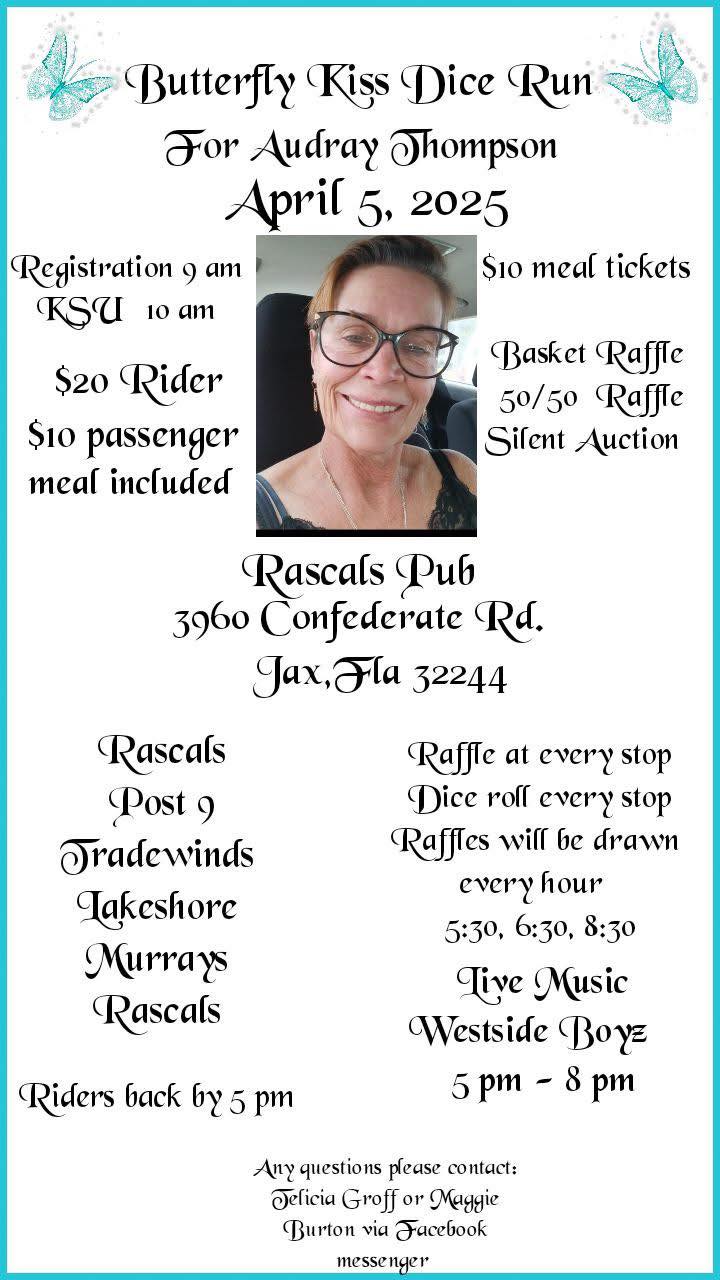 Butterfly Kiss Dice Run
For Audray Thompson
April 5, 2025
Registration 9 am
KSU 10 am
$20 Rider
$10 passenger
meal included
$10 meal tickets
Basket Raffle
50/50 Raffle
Silent Auction
Rascals Pub
3960 Confederate Rd.
Jax,Fla 32244
Rascals
Post 9
Tradewinds
Lakeshore
Murrays
Rascals
Riders back by 5 pm
Raffle at every stop
Dice roll every stop
Raffles will be drawn
every hour
5:30, 6:30, 8:30
Live Music
Westside Boyz
5 pm - 8 pm
Any questions please contact:
Felicia Groff or Maggie
Burton via Facebook
messenger